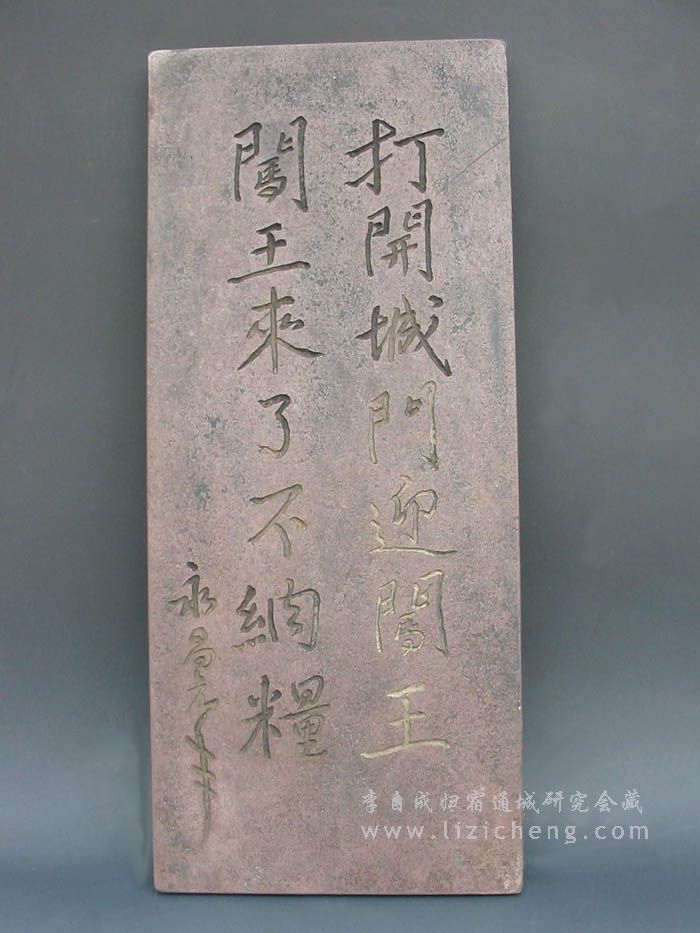 打開城門迎闖王
闖王來了不納糧
永昌元年
李自成归宿通城研究会藏
www.lizicheng.com